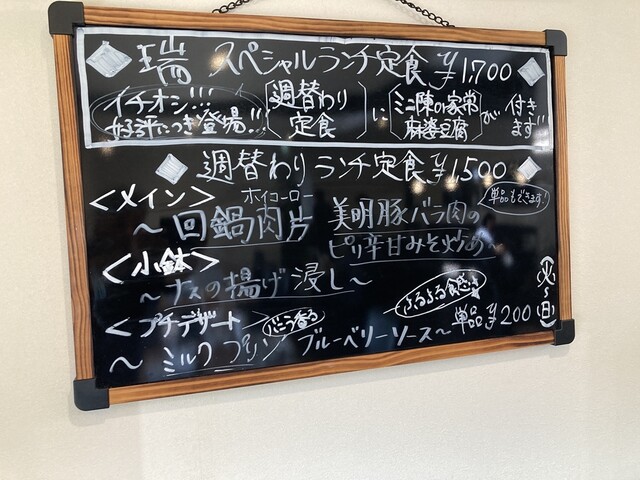 瑞 スペシャルランチ定食 ¥1,700
イチオシ!!!
好評につき登場!!
週替わり
定食
に
ミニ陳or家常
麻婆豆腐
が
付き
ます!!
週替わりランチ定食 ¥1,500
<メイン>
単品もできます!
ホイコーロー
~回鍋肉片 美明豚バラ肉の
ピリ辛甘みそ炒め~
<小鉢>
~ナスの揚げ浸し~
<プチデザート>
バニラ香る
ぷるぷる食感
~ミルクプリン ブルーベリーソース~ 単品¥200
(火~日)